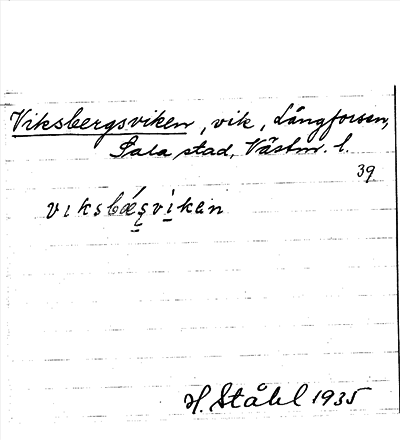 Viksbergsviken, vik, Långforsen,
Sala stad, Västm. l.
39
vıksbǽs̩vi̠ken
H. Ståhl 1935